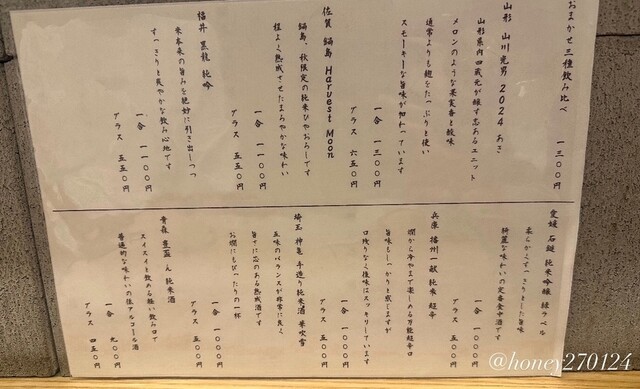 おまかせ三種飲み比べ 一三〇〇円
山形 山川光男 2024 あき
山形県内四蔵元が醸す志あるユニット
メロンのような果実香と酸味
通常よりも麹をたっぷりと使い
スモーキーな旨味が加わっています
一合 一三〇〇円
グラス 六五〇円
佐賀 鍋島 Harvest Moon
鍋島、秋限定の純米ひやおろしです
程よく熟成させたまろやかな味わい
一合 一一〇〇円
グラス 五五〇円
福井 黒龍 純吟
米本来の旨みを絶妙に引き出しつつ
すっきりと爽やかな飲み心地です
一合 一一〇〇円
グラス 五五〇円
愛媛 石鎚 純米吟醸 緑ラベル
柔らかくすっきりとした旨味
綺麗な味わいの定番食中酒です
一合 一一〇〇円
グラス 五五〇円
兵庫 播州一献 純米 超辛
燗から冷やまで楽しめる万能超辛口
旨味もしっかりと感てますが
口残りなく後味はスッキリしています
一合 一〇〇〇円
グラス 五〇〇円
埼玉 神亀 手造り純米酒 華吹雪
五味のバランスが非常に良く
旨さに芯のある熟成酒です
お燗にもぴったりの一杯
一合 一〇〇〇円
グラス 五〇〇円
青森 豊盃 ん 純米酒
スイスイと飲める軽い飲み口で
普遍的な味わいの低アルコール酒
一合 九〇〇円
グラス 四五〇円
@honey270124